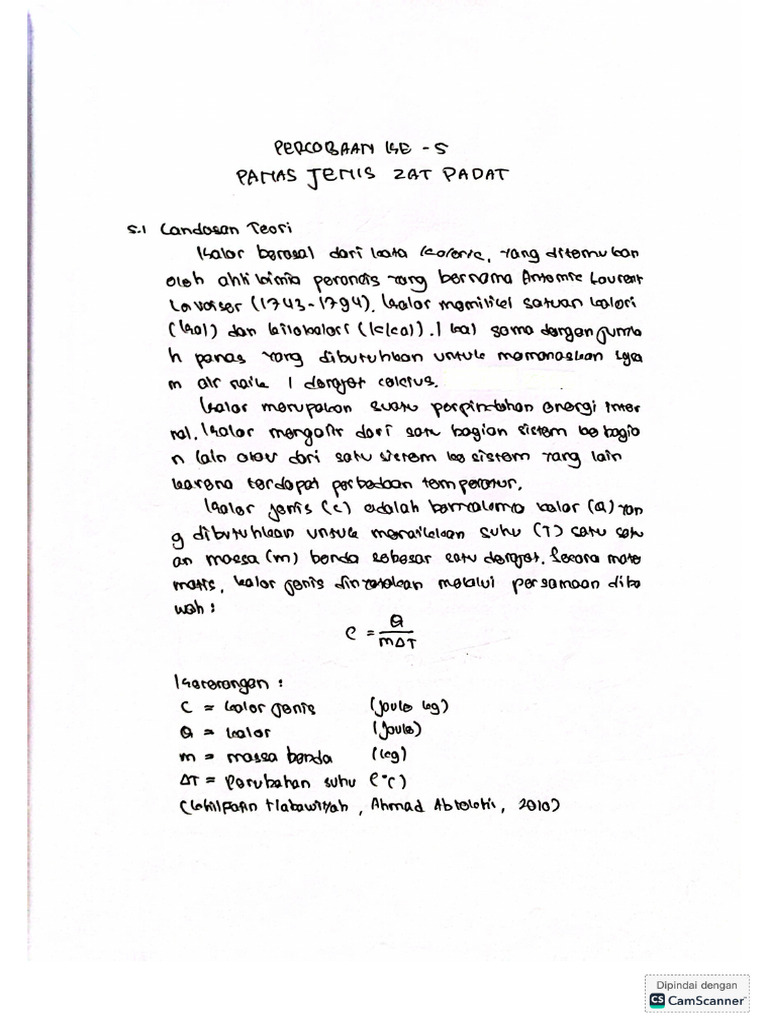 PERCOBAAN KE - 5
PANAS JENIS ZAT PADAT
5.1 Landasan Teori
Kalor berasal dari kata kaloric, yang ditemukan
oleh ahli kimia perancis yang bernama Antomie Laurent
Lavoiser (1743-1794). Kalor memiliki satuan kalori
(kal) dan kilokalori (kkal). 1 kal sama dengan jumla
h panas yang dibutuhkan untuk memanaskan 1 gra
m air naik 1 derajat celcius.
Kalor merupakan suatu perpindahan energi inter
nal. Kalor mengalir dari satu bagian sistem ke bagia
n lain atau dari satu sistem ke sistem yang lain
karena terdapat perbedaan temperatur.
Kalor jenis (c) adalah banyaknya kalor (Q) yan
g dibutuhkan untuk menaikkan suhu (T) satu satu
an massa (m) benda sebesar satu derajat. Secara mate
matis, kalor jenis dinyatakan melalui persamaan diba
wah :
C = Q / mΔT
Keterangan :
C = kalor jenis (joule kg)
Q = kalor (joule)
m = massa benda (kg)
ΔT = Perubahan suhu (°C)
Ahmad, 2010)
Dipindai dengan
CS CamScanner